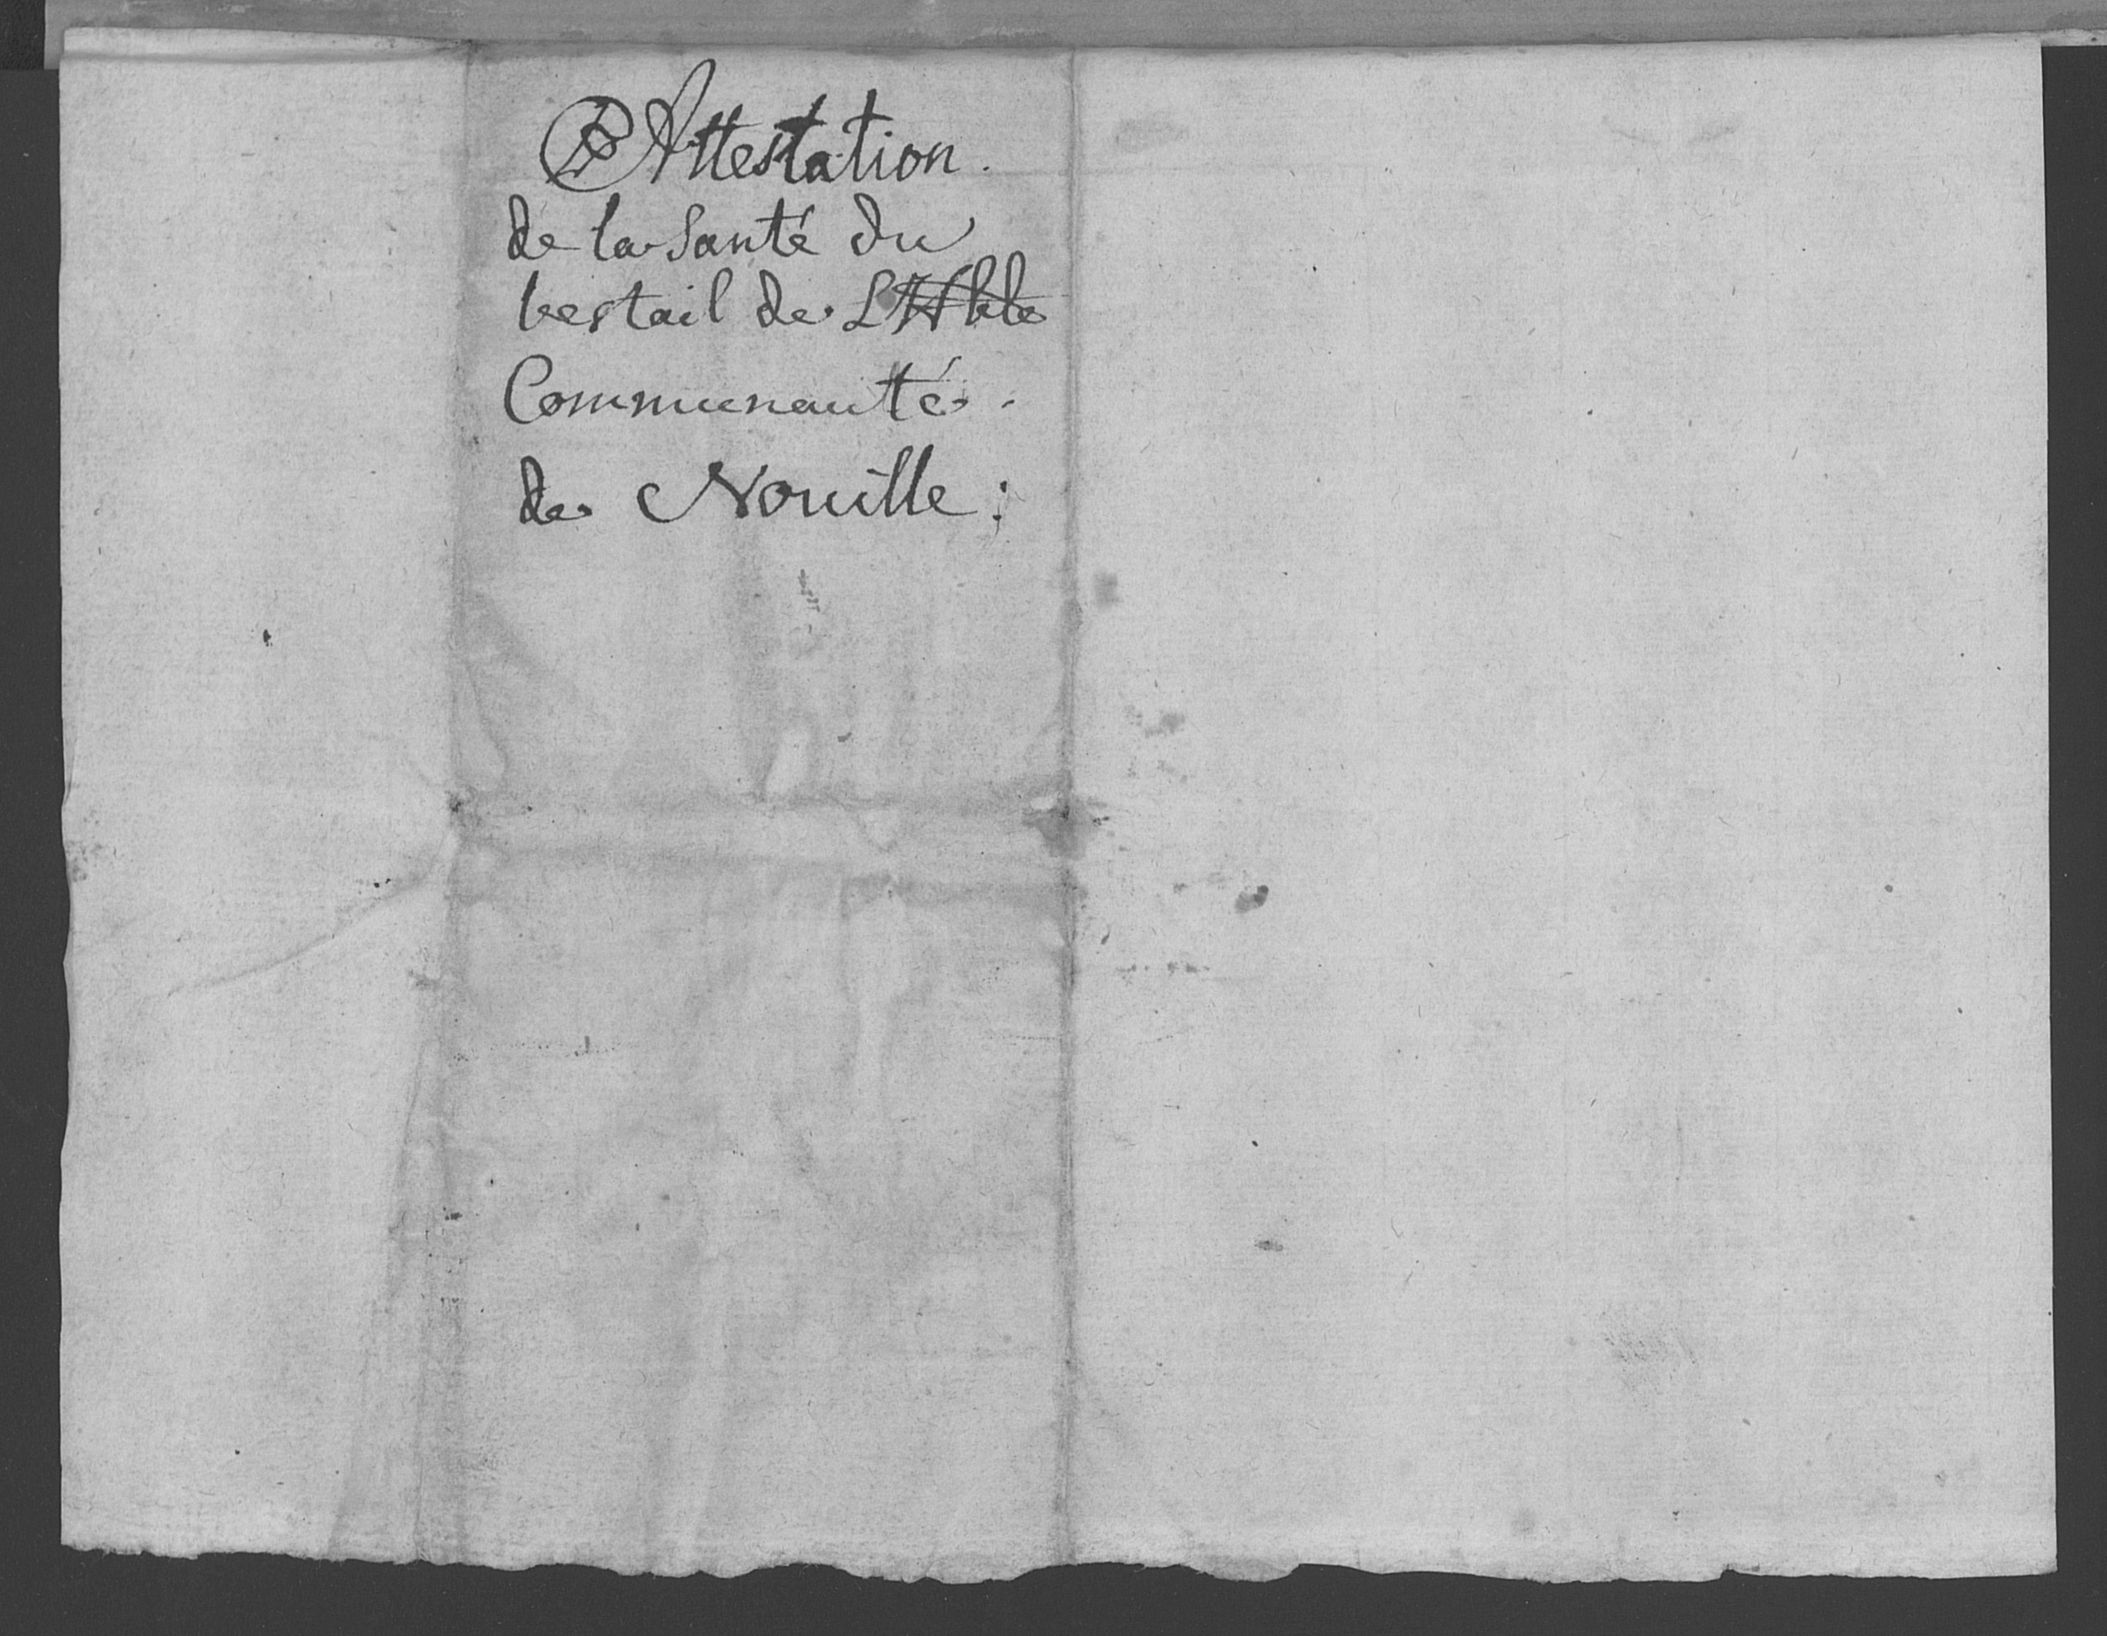 Attestation.
de la Santé du
bestail de L'Hble
Communauté.
de Nouille: